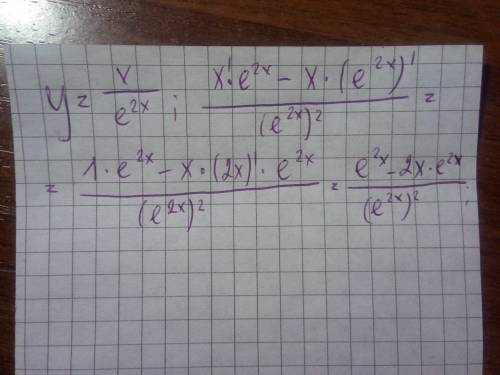 y = x / e^{2x} ; (x' · e^{2x} - x · (e^{2x})') / (e^{2x})^2 =
= (1 · e^{2x} - x · (2x)' · e^{2x}) / (e^{2x})^2 = (e^{2x} - 2x · e^{2x}) / (e^{2x})^2 ;